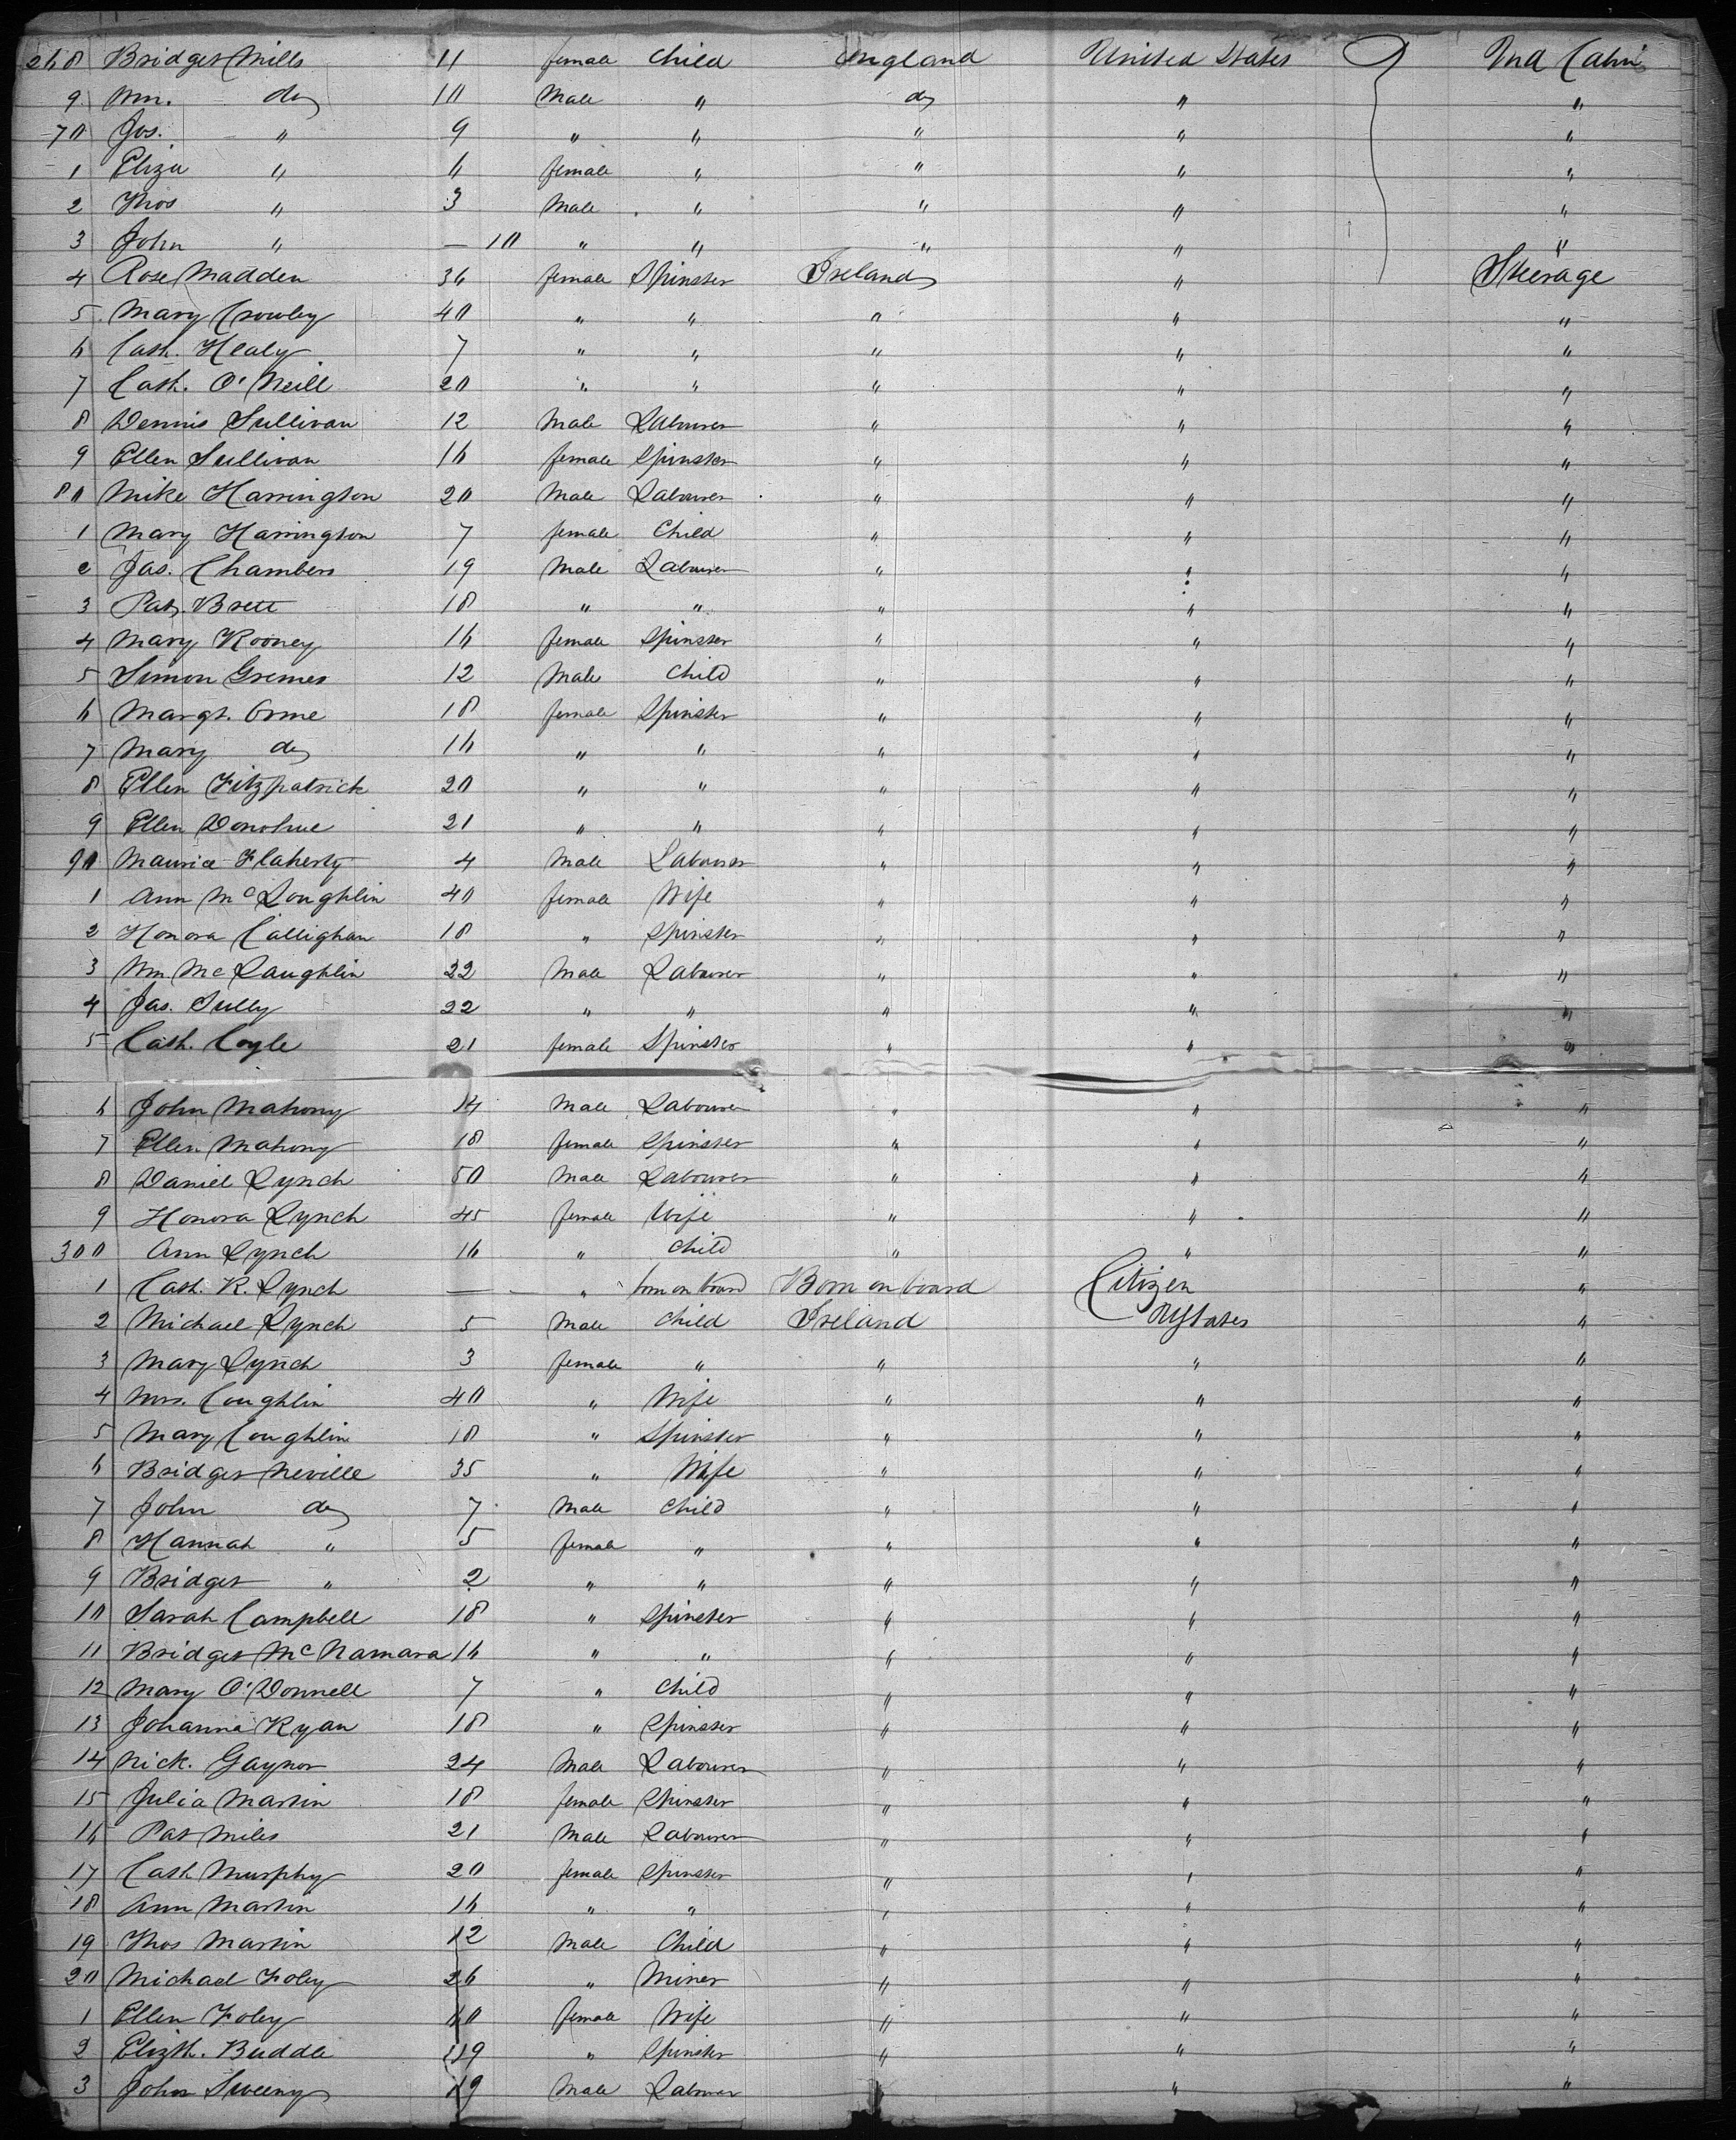 268 Bridget Mills 11 female Child England United States 2nd Cabin
9 Wm. do 10 Male " do " "
70 Jos. " 9 " " " " "
1 Eliza " 6 female " " " "
2 Thos " 3 Male " " " "
3 John " — 10 " " " " "
4 Rose Madden 36 female Spinster Ireland " Steerage
5 Mary Crowley 40 " " " " "
6 Cath. Healy 7 " " " " "
7 Cath. O'Neill 20 " " " " "
8 Dennis Sullivan 12 Male Labourer " " "
9 Ellen Sullivan 16 female Spinster " " "
80 Mike Harrington 20 Male Labourer " " "
1 Mary Harrington 7 female Child " " "
2 Jas. Chambers 19 Male Labourer " " "
3 Pat. Brett 18 " " " " "
4 Mary Rooney 16 female Spinster " " "
5 Simon Grimes 12 Male Child " " "
6 Margt. Orme 18 female Spinster " " "
7 Mary do 16 " " " " "
8 Ellen Fitzpatrick 20 " " " " "
9 Ellen Donohue 21 " " " " "
90 Maurice Flaherty 4 Male Labourer " " "
1 Ann McLoughlin 40 female Wife " " "
2 Honora Callighan 18 " Spinster " " "
3 Wm McLaughlin 22 Male Labourer " " "
4 Jas. Tully 22 " " " " "
5 Cath. Coyle 21 female Spinster " " "
6 John Mahony 14 Male Labourer " " "
7 Ellen Mahony 18 female Spinster " " "
8 Daniel Lynch 50 Male Labourer " " "
9 Honora Lynch 45 female Wife " " "
300 Ann Lynch 16 " Child " " "
1 Cath. R. Lynch — " born on board Born on board Citizen "
2 Michael Lynch 5 Male Child Ireland UStates "
3 Mary Lynch 3 female " " " "
4 Mrs. Coughlin 40 " Wife " " "
5 Mary Coughlin 18 " Spinster " " "
6 Bridget Neville 35 " Wife " " "
7 John do 7 Male Child " " "
8 Hannah " 5 female " " " "
9 Bridget " 2 " " " " "
10 Sarah Campbell 18 " Spinster " " "
11 Bridget McNamara 16 " " " " "
12 Mary O'Donnell 7 " Child " " "
13 Johanna Ryan 18 " Spinster " " "
14 Nick. Gaynor 24 Male Labourer " " "
15 Julia Martin 18 female Spinster " " "
16 Pat Miles 21 Male Labourer " " "
17 Cath Murphy 20 female Spinster " " "
18 Ann Martin 16 " " " " "
19 Thos Martin 12 Male Child " " "
20 Michael Foley 26 " Miner " " "
1 Ellen Foley female Wife " " "
2 Elizth. Buddle 19 " Spinster " " "
3 John Sweeny 19 Male Labourer " " "